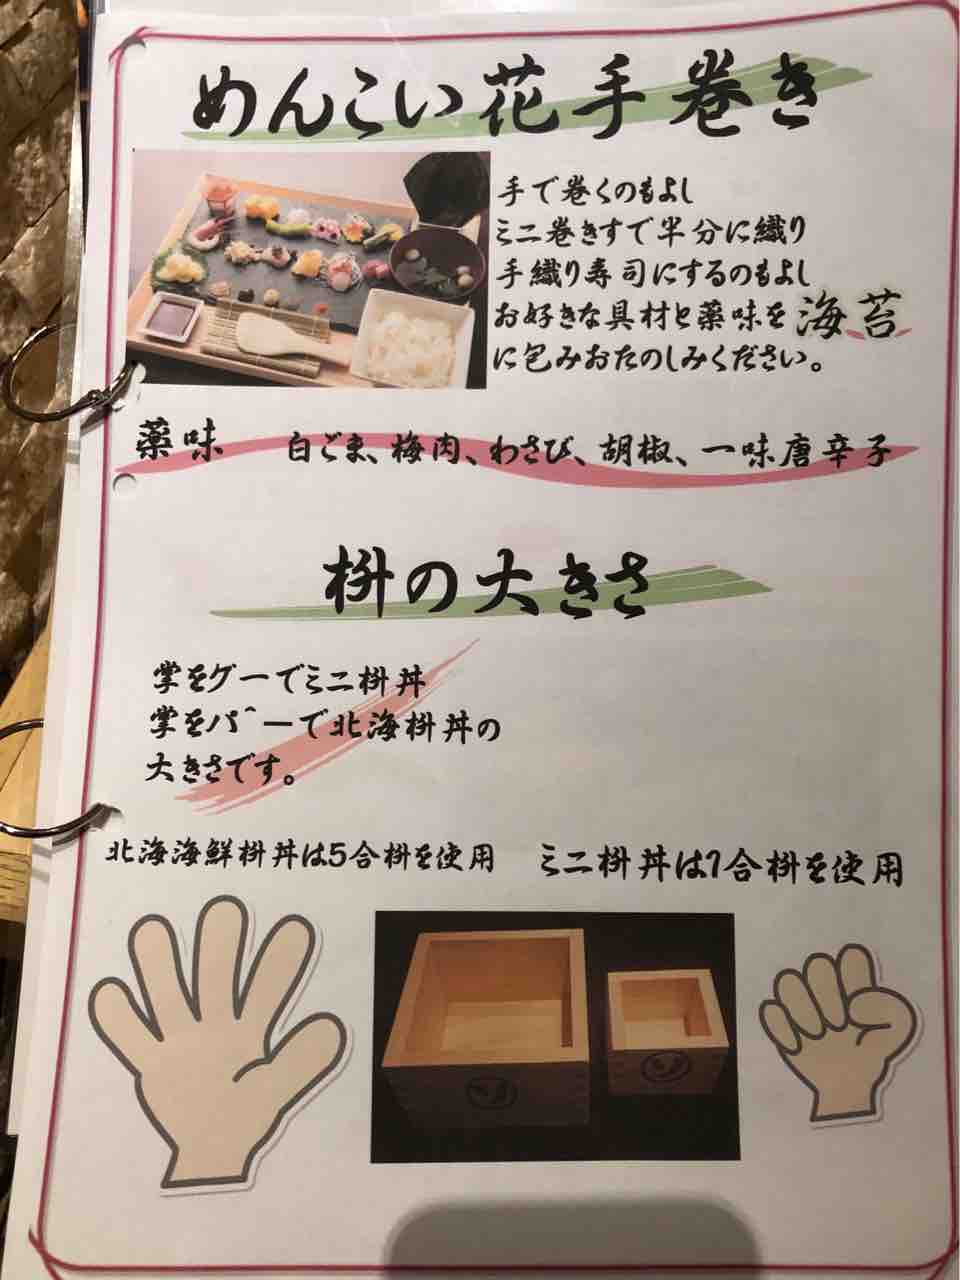 めんこい花手巻き
手で巻くのもよし
ミニ巻きすで半分に織り
手織り寿司にするのもよし
お好きな具材と薬味を海苔
に包みおたのしみください。
薬味　白ごま、梅肉、わさび、胡椒、一味唐辛子
枡の大きさ
掌をグーでミニ枡丼
掌をパーで北海枡丼の
大きさです。
北海海鮮枡丼は5合枡を使用　ミニ枡丼は1合枡を使用